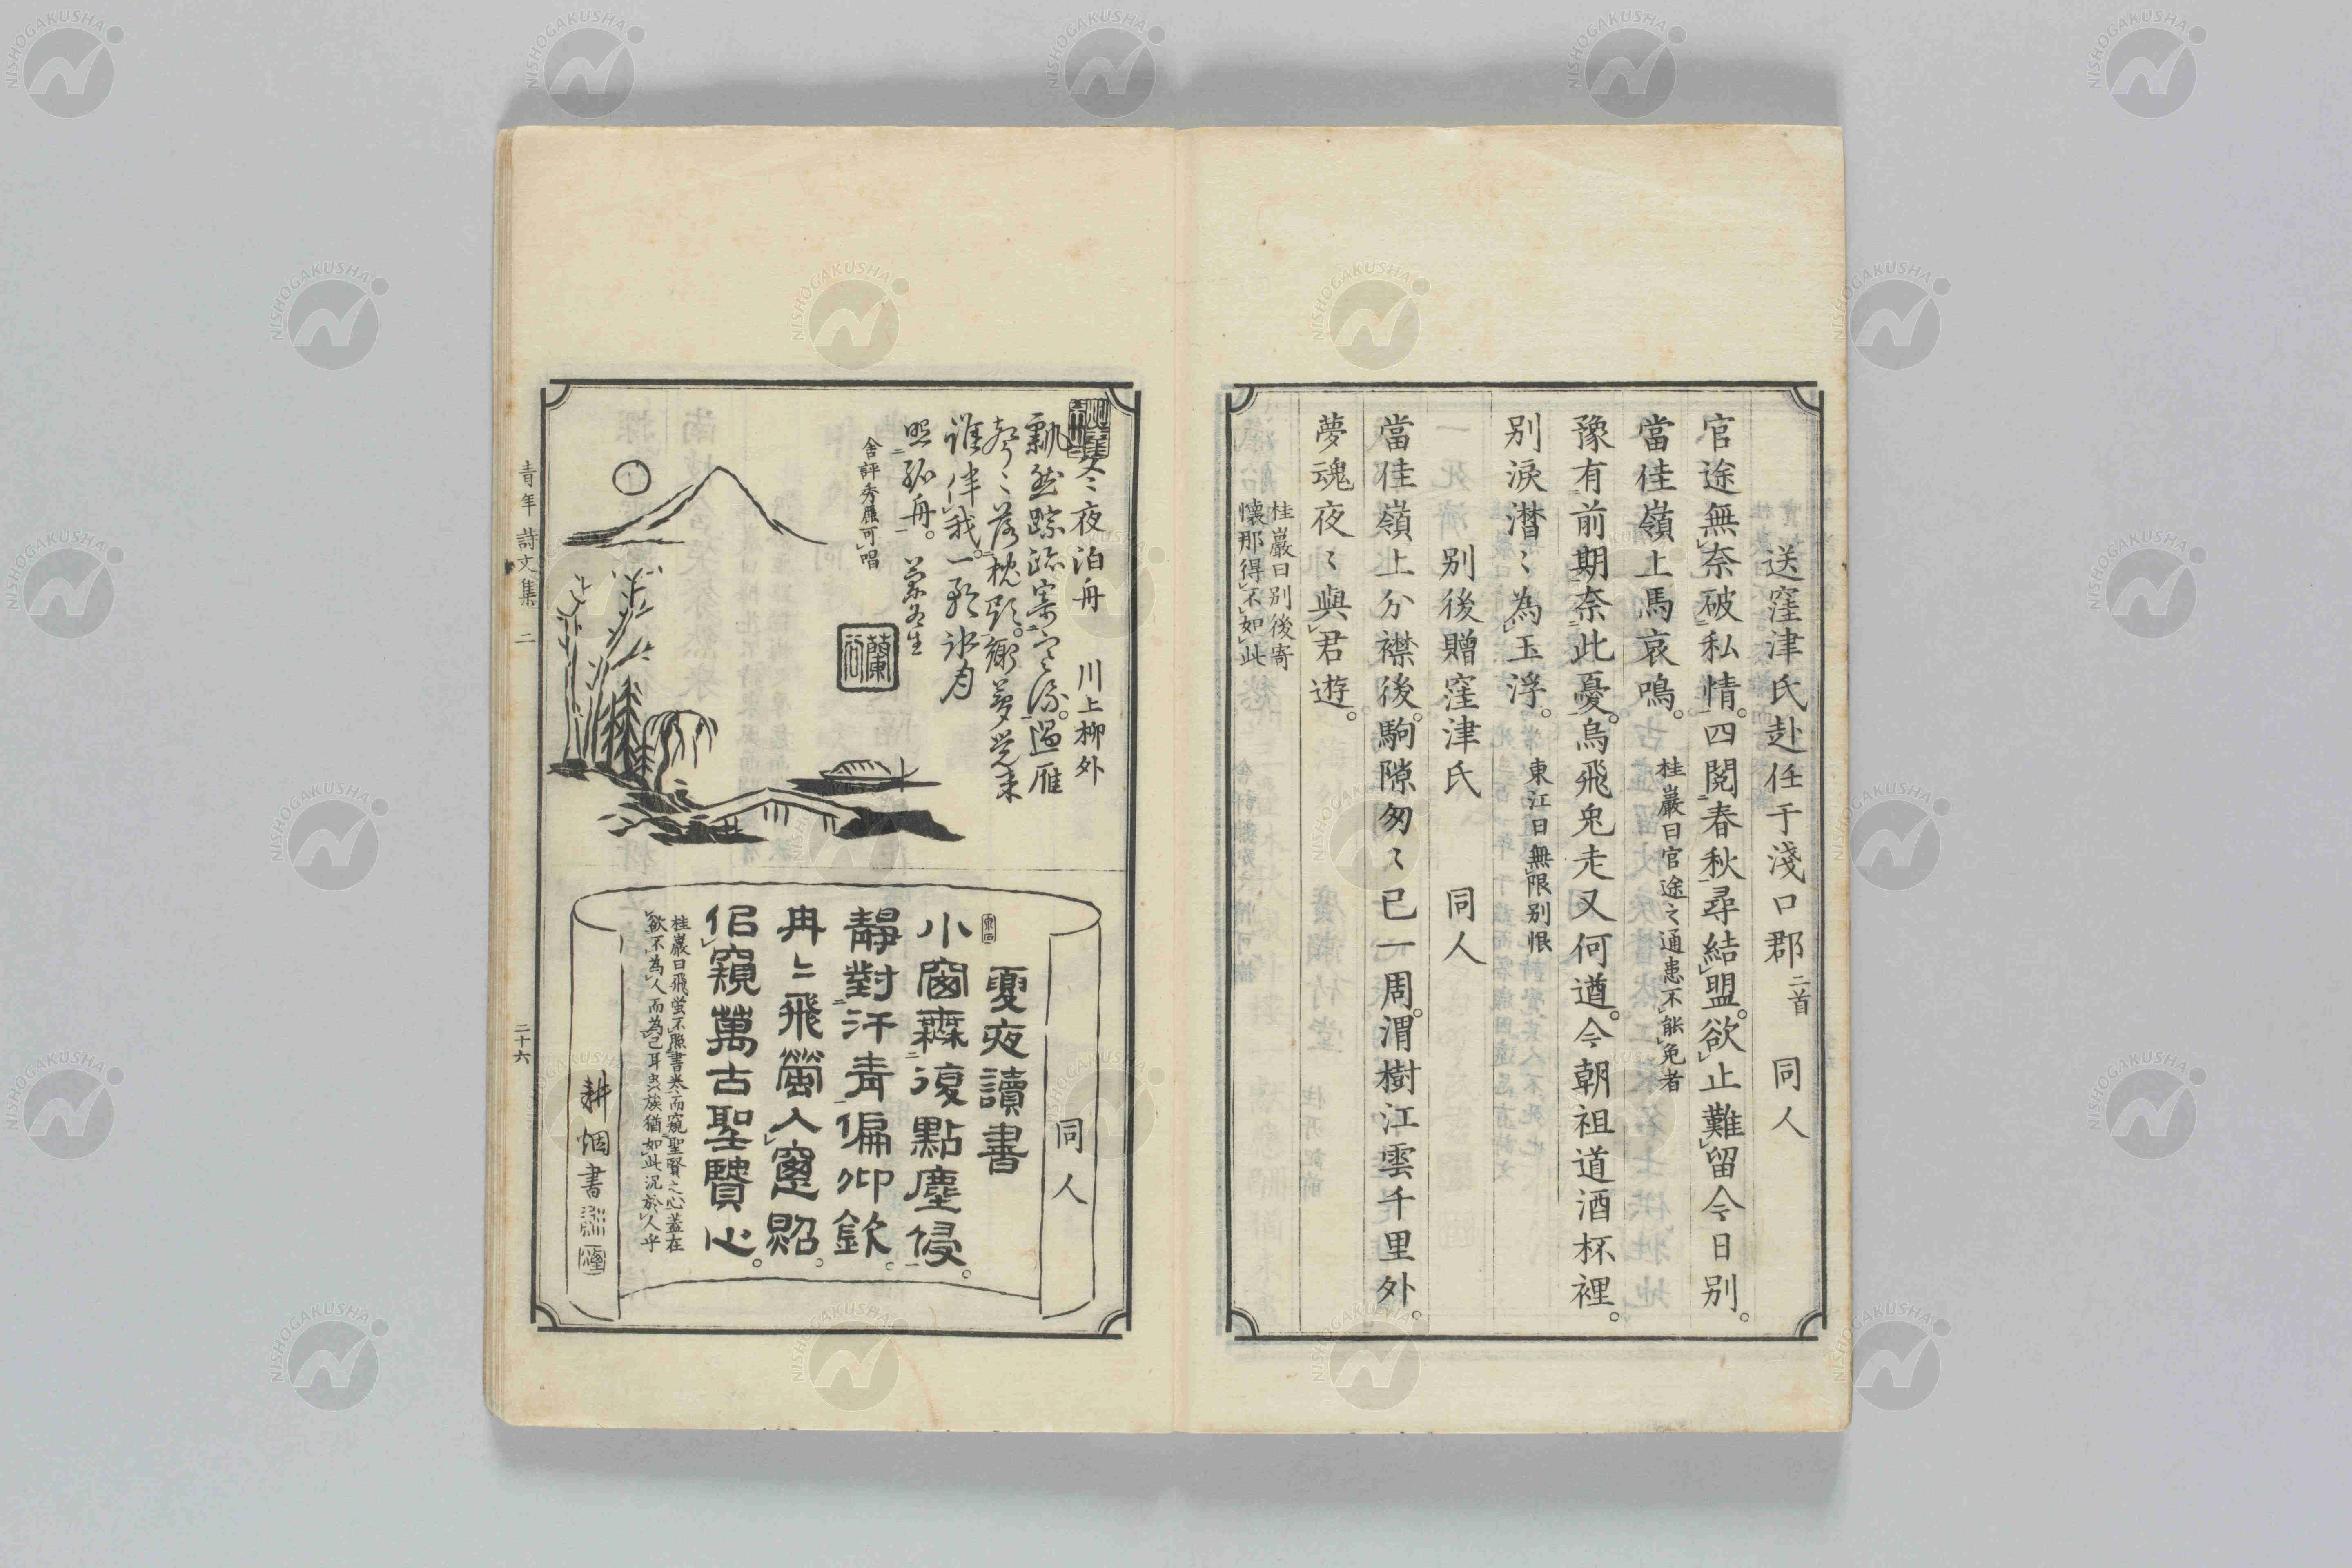 送窪津氏赴任于淺口郡 二首 同人
官途無奈破私情。四閱春秋尋結盟。欲止難留今日別。
當佳嶺上馬哀鳴。
桂巖曰官途之通患不能免者
豫有前期奈此憂。烏飛兎走又何遒。今朝祖道酒杯裡。
別淚潸〻為玉浮。
東江曰無限別恨
別後贈窪津氏 同人
當佳嶺上分襟後。駒隙匆〻已一周。渭樹江雲千里外。
夢魂夜〻與君遊。
桂巖曰別後寄
懷那得不如此
冬夜泊舟 川上柳外
飄然蹤跡寄流。過雁
落枕頭。鄉夢覺來
誰伴我。一
照孤舟。
舍評秀雁可唱
蘭谷
同人
夏夜讀書
小窗簾復點塵侵。
靜對汗青偏仰欽。
冉〻飛螢入窗照。
侶窺萬古聖賢心。
桂巖曰飛螢不照書卷而窺聖賢之心蓋在
欲不為人而為己耳虫族猶如此況於人乎
耕烟書
青年詩文集 二
二十六
NISHOGAKUSHA